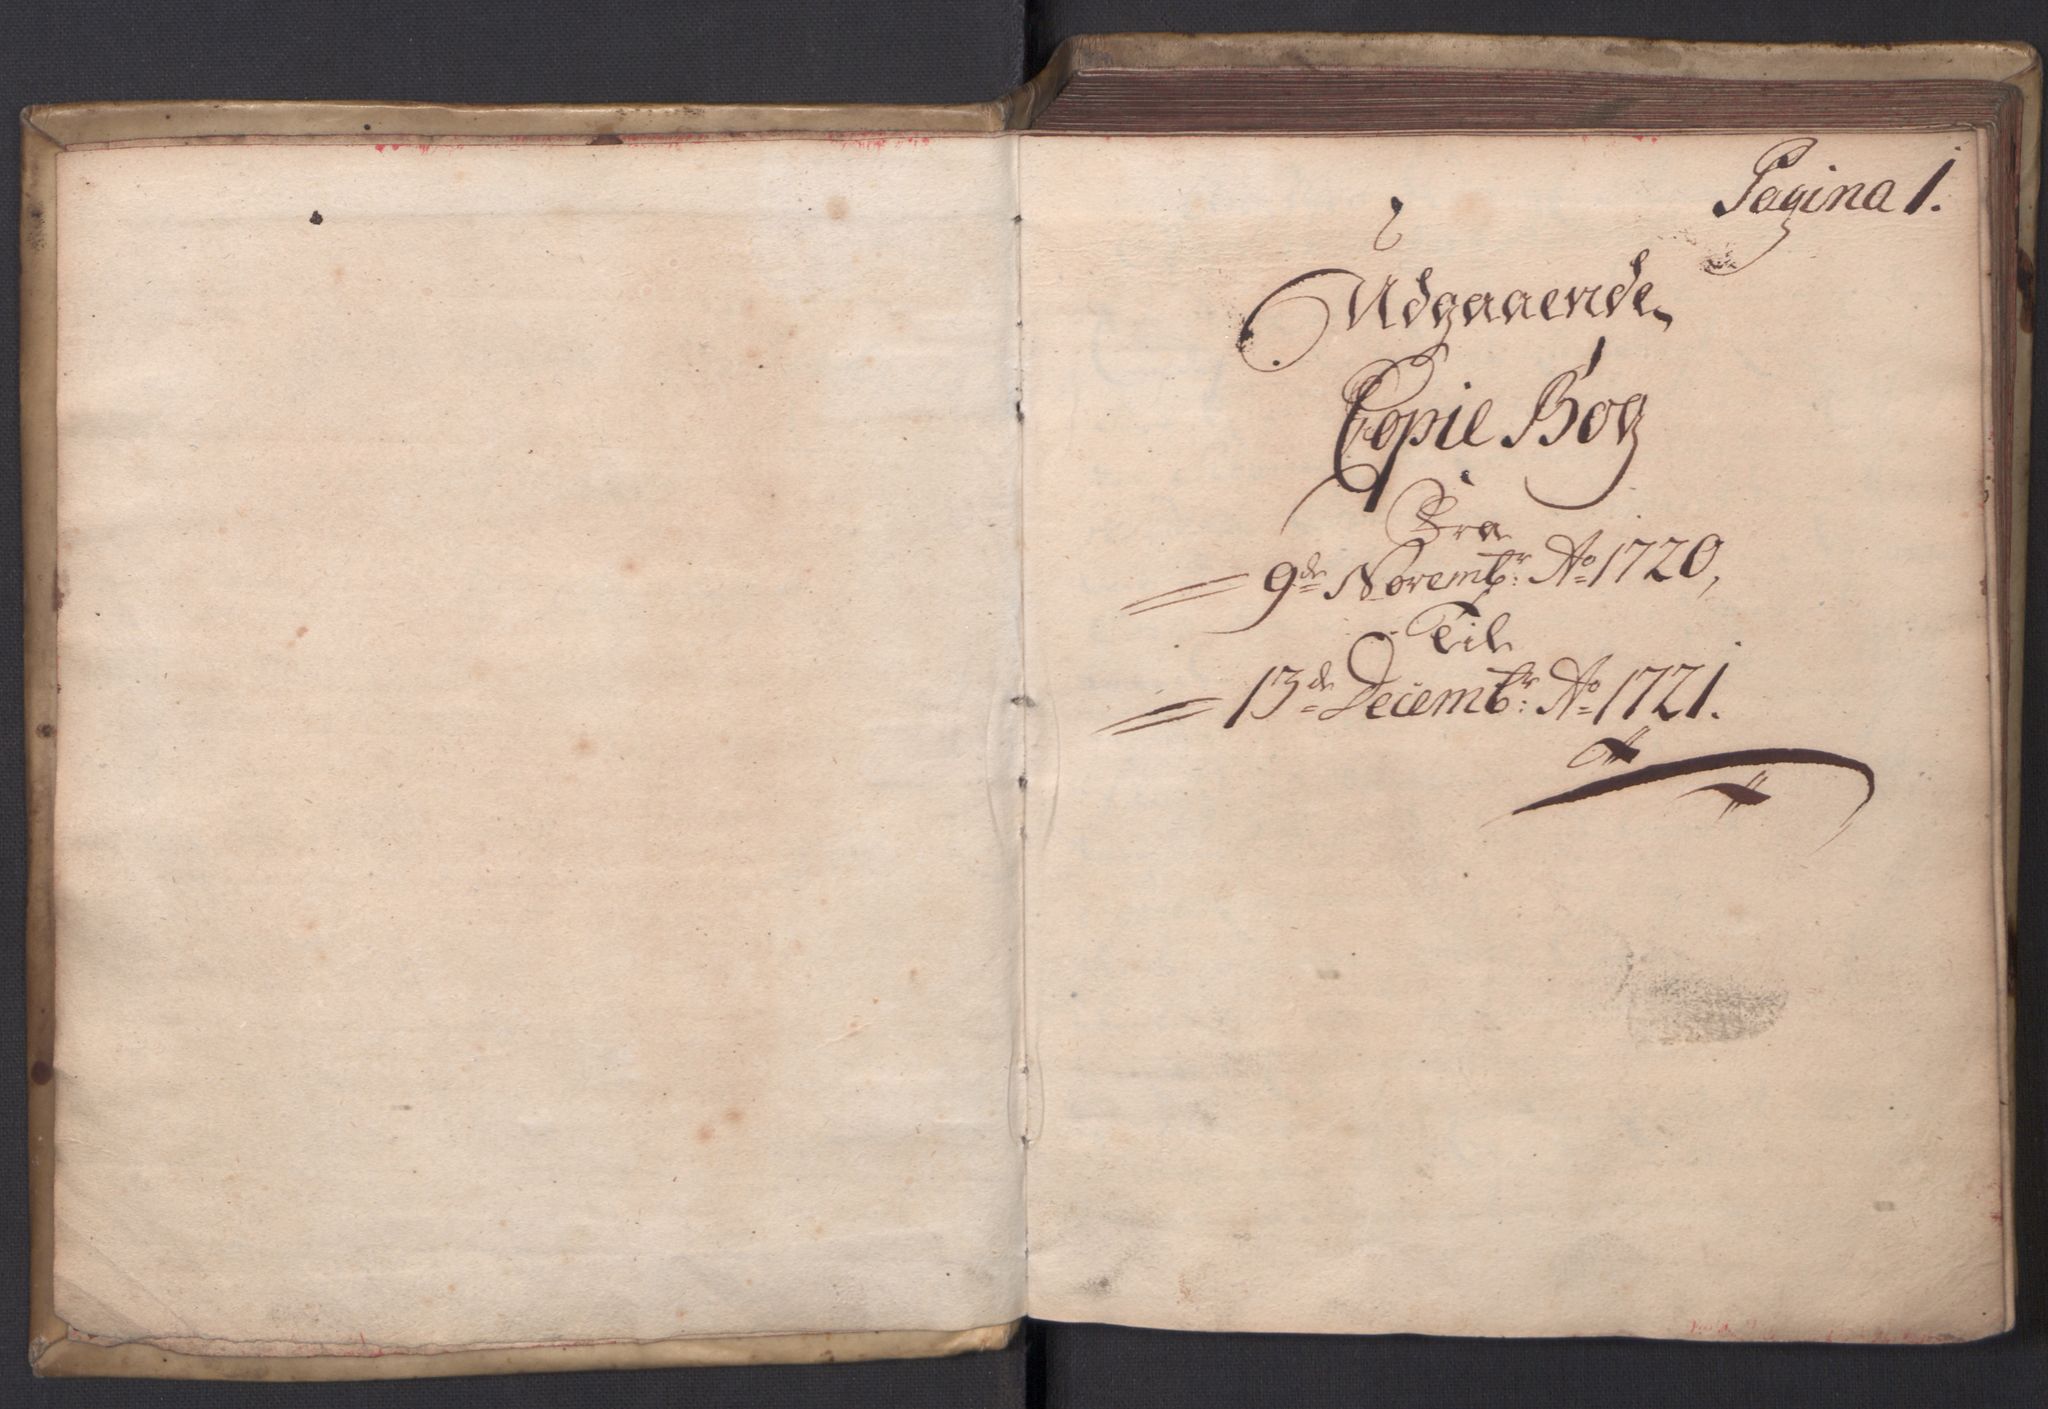 Pagina 1.
Udgaaende
Copie Bog
Fra
9de Novembr: Ao 1720,
Til
13de Decembr: Ao 1721.